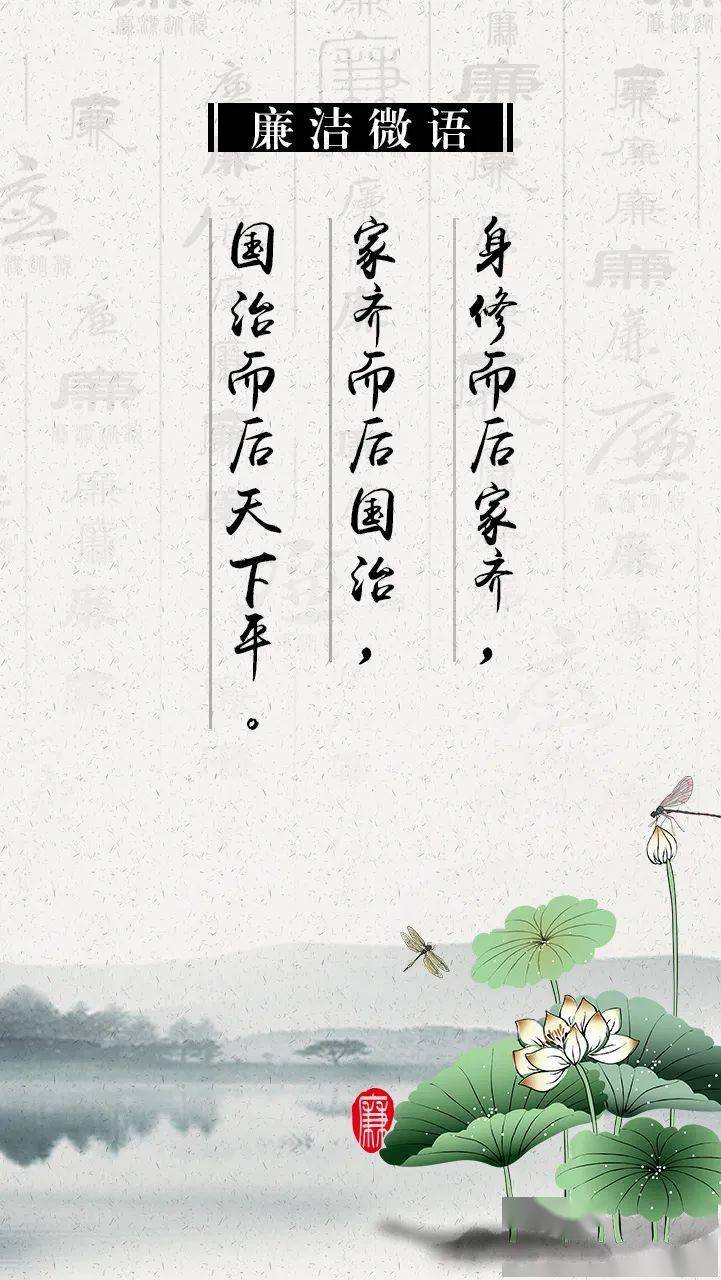 廉洁微语
身修而后家齐，
家齐而后国治，
国治而后天下平。
廉